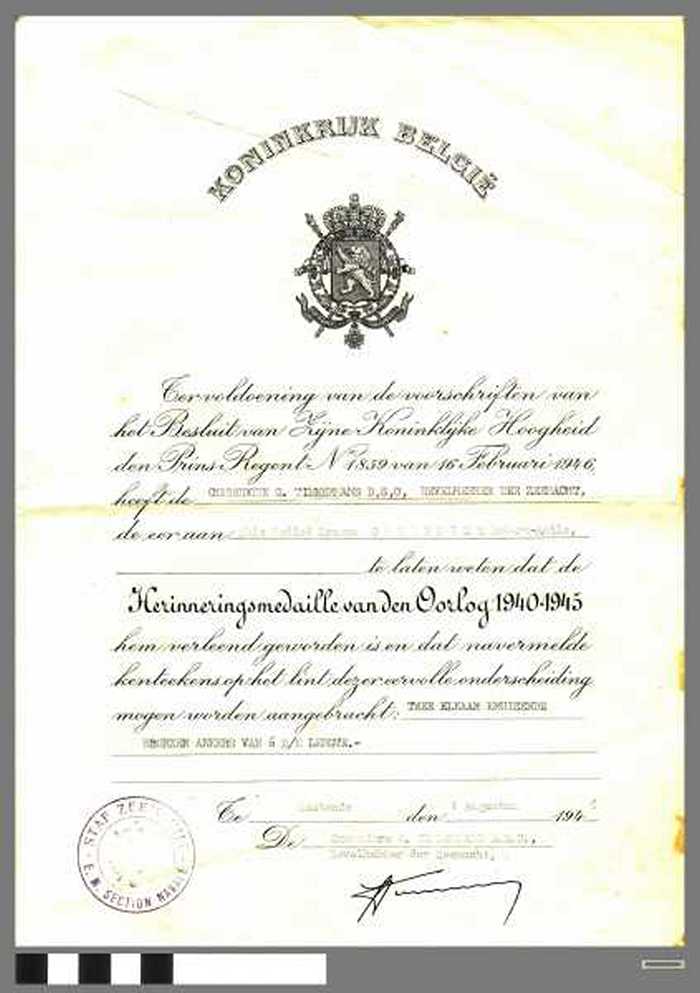 KONINKRIJK BELGIË
Ter voldoening van de voorschriften van
het Besluit van Zijne Koninklijke Hoogheid
den Prins Regent Nr 1859 van 16 Februari 1946,
heeft de COMMODORE G. TIMMERMANS D.S.O, BEVELHEBBER DER ZEEMACHT,
de eer aan
te laten weten dat de
Herinneringsmedaille van den Oorlog 1940-1945
hem verleend geworden is en dat navermelde
kenteekens op het lint dezer eervolle onderscheiding
mogen worden aangebracht: TWEE ELKAAR KRUISENDE
BRONZEN ANKERS VAN 6 m/m LENGTE.-
Te Oostende den Augustus 194
De Commodore G. TIMMERMANS D.S.O.,
Bevelhebber der Zeemacht,
STAF ZEE
E.M. SECTION NAVALE